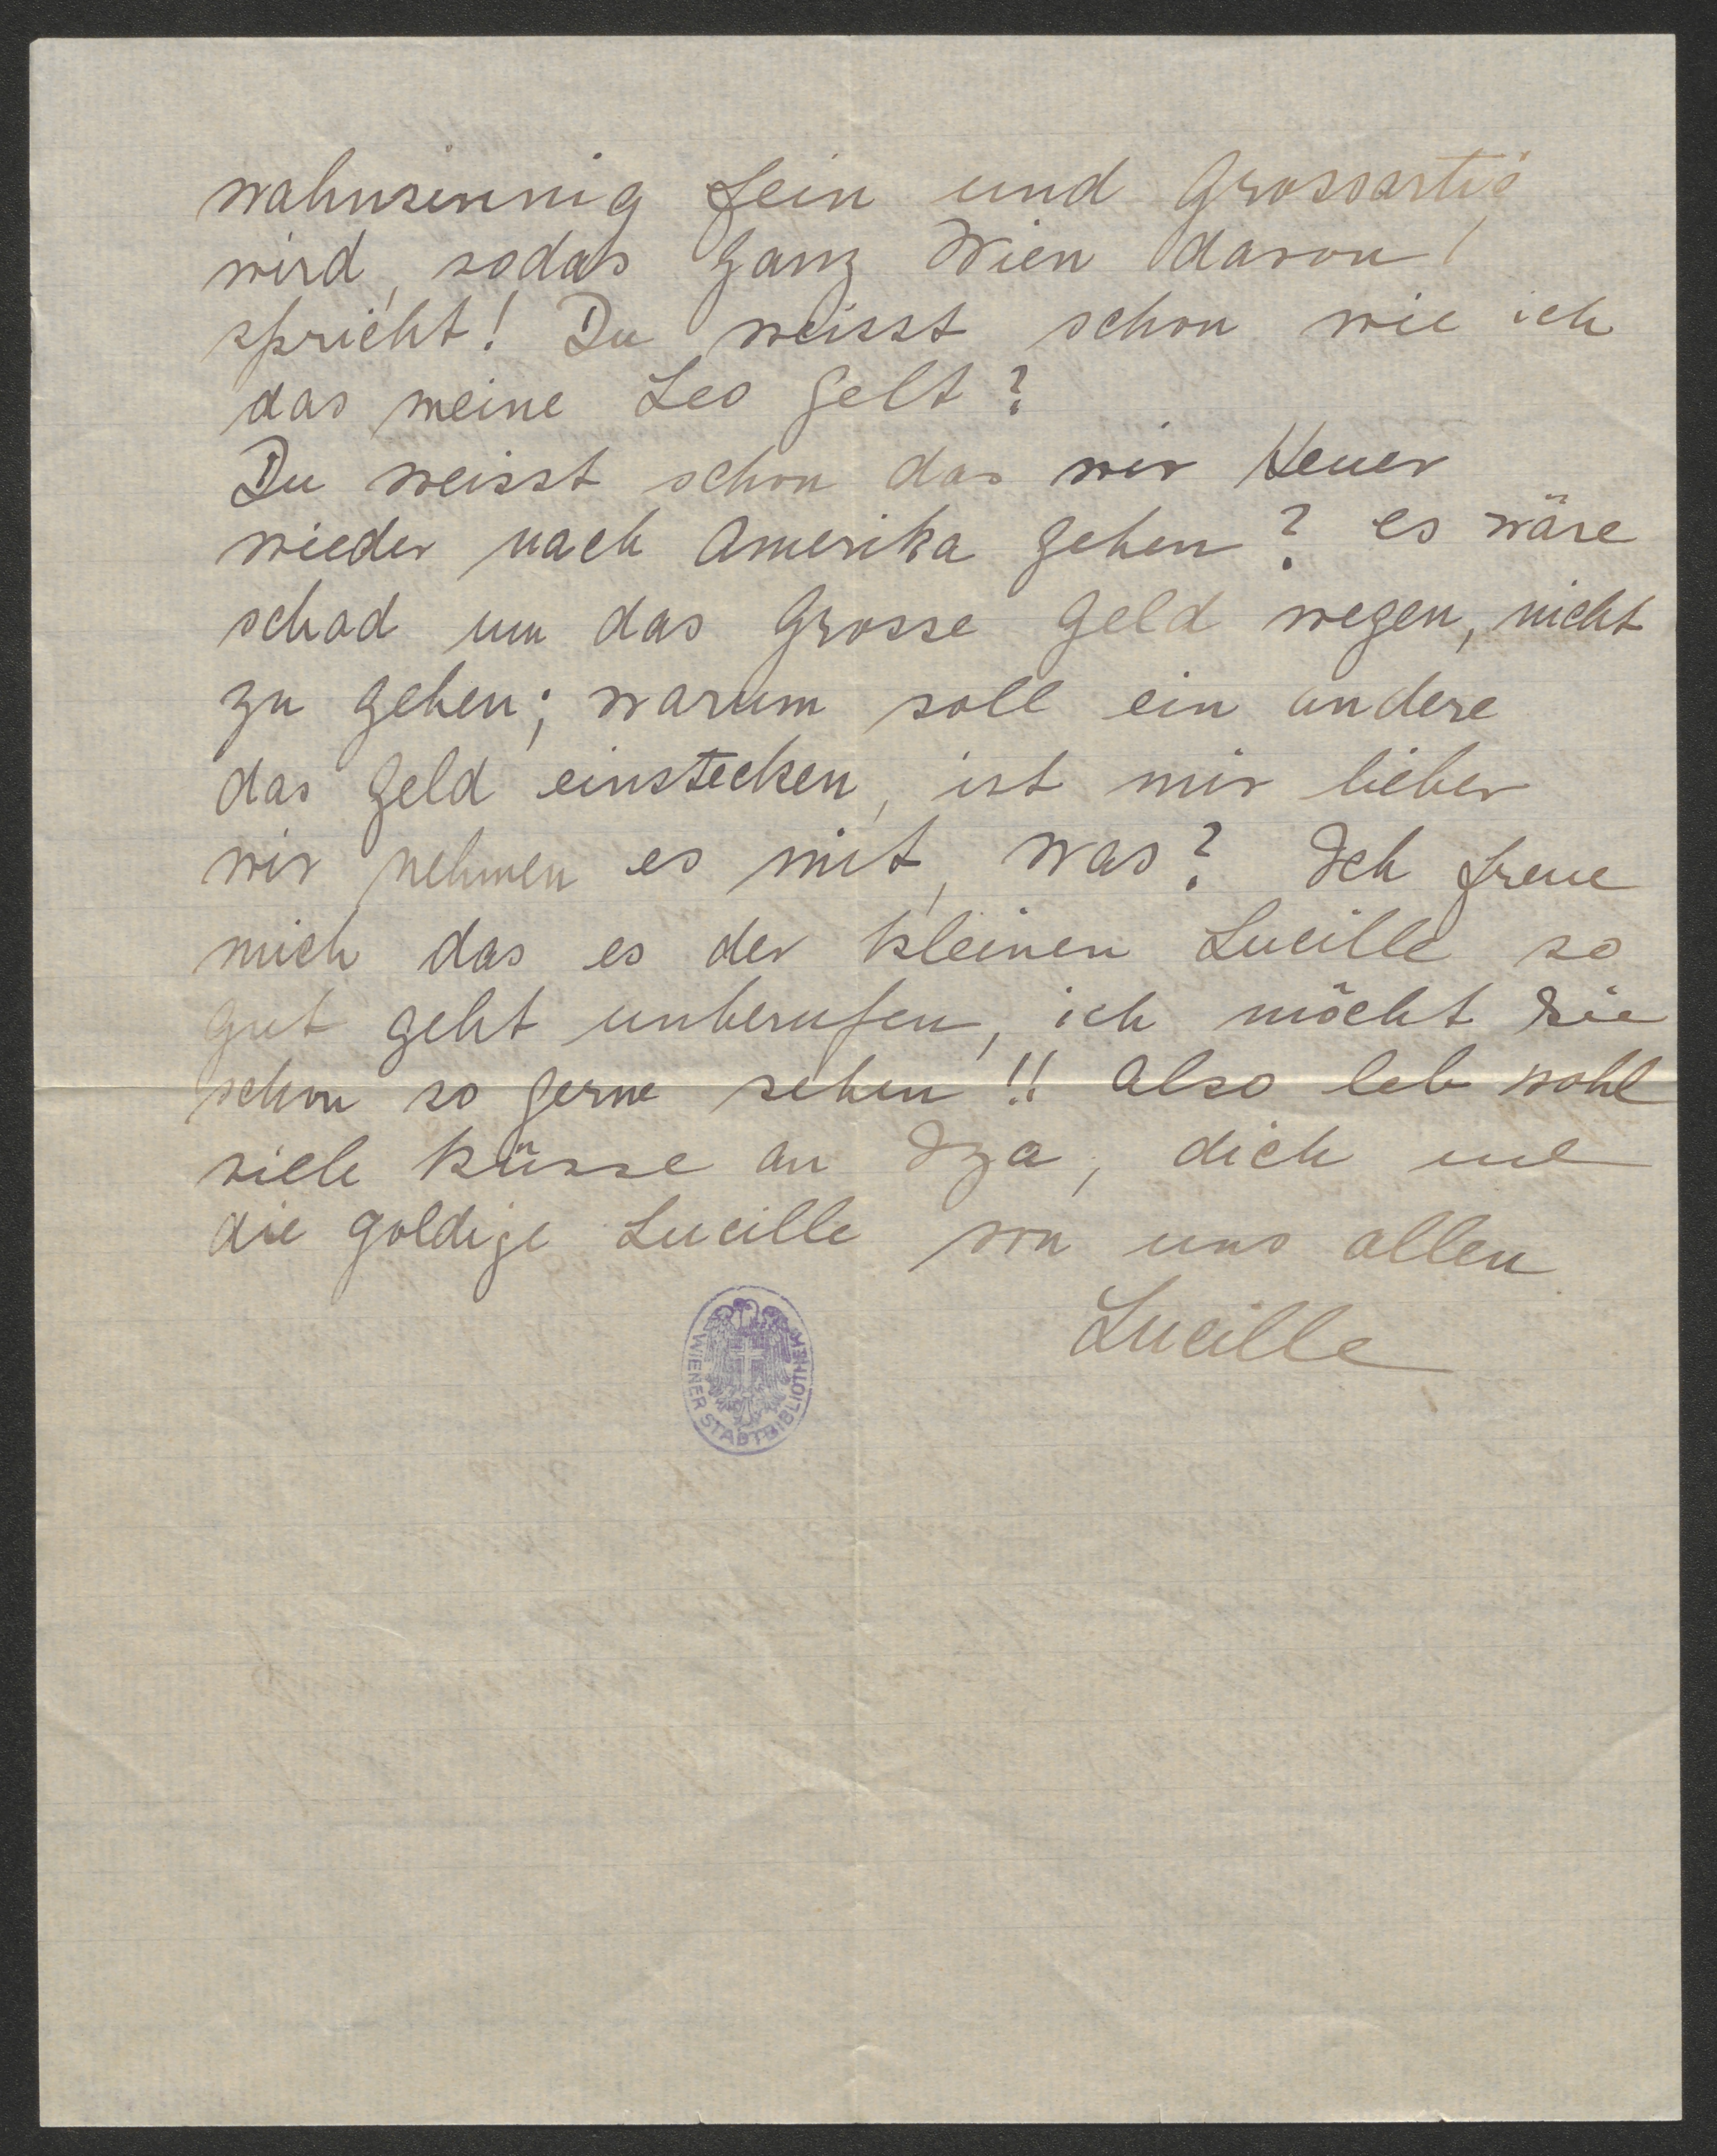 wahnsinnig fein und Grossartig
wird, sodas Ganz Wien davon
spricht! Du weisst schon wie ich
das meine Leo gelt?
Du weisst schon das wir Heuer
wieder nach Amerika gehen? es wäre
schad um das Grosse Geld wegen, nicht
zu gehen; warum soll ein andere
das Geld einstecken, ist mir lieber
wir nehmen es mit, was? Ich freue
mich das es der kleinen Lucille so
gut geht unberufen, ich möcht sie
schon so gerne sehen!! Also leb wohl
viele Küsse an Iza, dich und
die goldige Lucille von uns allen
Lucille
WIENER STADTBIBLIOTHEK